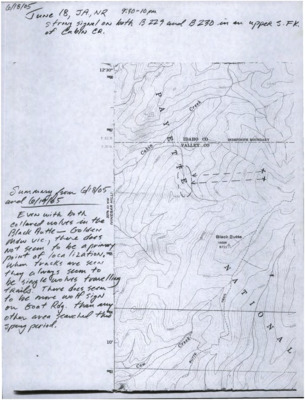 6/18/05
June 18, JA, NR 9:30-10pm
strong signal on both B229 and B230 in an upper S.FK.
of Cabin CR.
12'30"
PAYETTE
Cabin Creek
IDAHO CO
VALLEY CO
Black Butte
NATIONAL
Creek
Summary from 6/18/05
and 6/19/05
Even with both
collared wolves in the
Black Butte - Golden
area vic, there does
not seem to be a primary
point of localization.
When tracks are seen
they always seem to
be single wolves travelling
trails. There does seem
to be more wolf sign
on Goat Rdg. than any
other area searched this
spring period.
Cow Creek